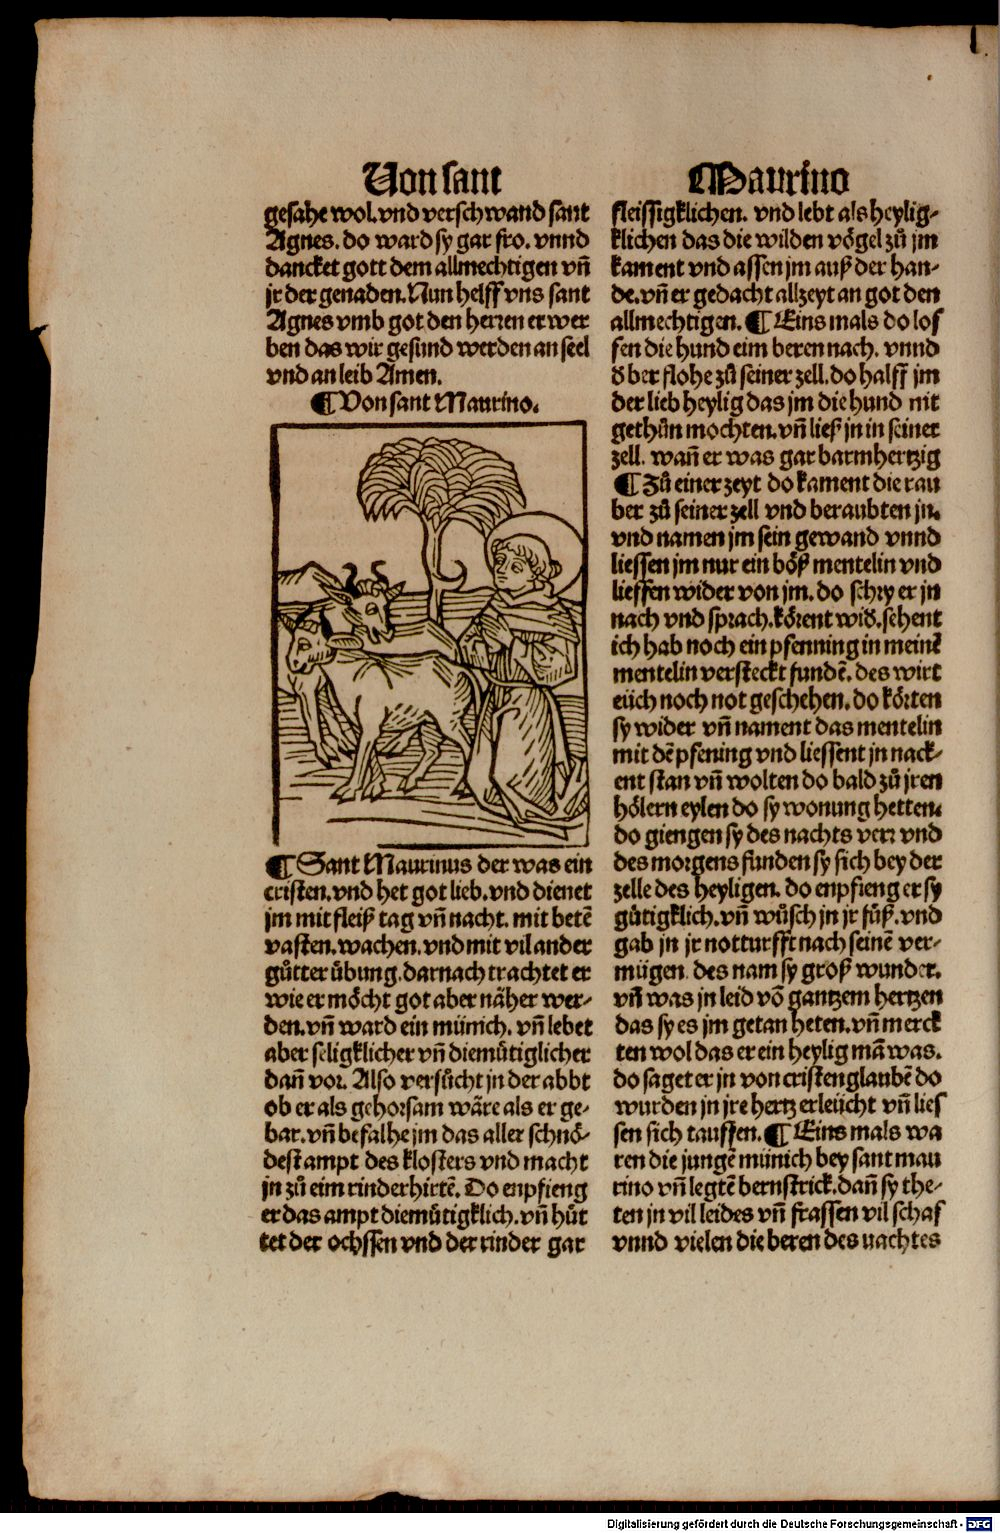 Von sant
gesahe wol. vnd verschwand sant
Agnes. do ward sy gar fro. vnnd
dancket gott dem allmechtigen vñ
jr der genaden. Nun helff vns sant
Agnes vmb got den herren erwer
ben das wir gesund werden an seel
vnd an leib Amen.
¶ Von sant Maurino.
¶ Sant Maurinus der was ein
cristen. vnd het got lieb. vnd dienet
jm mit fleiß tag vñ nacht. mit betē
vasten. wachen. vnd mit vil ander
gůtter übung. darnach trachtet er
wie er möcht got aber näher wer-
den. vñ ward ein münich. vñ lebet
aber seligklicher vñ diemütiglicher
dañ vor. Also versůcht jn der abbt
ob er als gehorsam wäre als er ge-
bar. vñ befalhe jm das aller schnö-
dest ampt des klosters vnd macht
jn zů eim rinderhirtē. Do enpfieng
er das ampt diemütigklich. vñ hůt
tet der ochssen vnd der rinder gar
Maurino
fleissigklichen. vnd lebt als heylig-
klichen das die wilden vögel zů jm
kament vnd assen jm auß der han-
de. vñ er gedacht allzeyt an got den
allmechtigen. ¶ Eins mals do lof
fen die hund eim beren nach. vnnd
d̄ ber flohe zů seiner zell. do halff jm
der lieb heylig das jm die hund nit
gethůn mochten. vñ ließ jn in seiner
zell. wañ er was gar barmhertzig
¶ Zů einer zeyt do kament die rau
ber zů seiner zell vnd beraubten jn.
vnd namen jm sein gewand vnnd
liessen jm nur ein böß mentelin vnd
lieffen wider von jm. do schry er jn
nach vnd sprach. körent wid̄. sehent
ich hab noch ein pfenning in meinē
mentelin versteckt fundē. des wirt
eüch noch not geschehen. do körten
sy wider vñ nament das mentelin
mit dē pfening vnd liessent jn nack-
ent stan vñ wolten do bald zů jren
hölern eylen do sy wonung hetten.
do giengen sy des nachts verr vnd
des morgens funden sy sich bey der
zelle des heyligen. do enpfieng er sy
gütigklich. vñ wůsch jn jr füß. vnd
gab jn jr notturfft nach seinē ver-
mügen. des nam sy groß wunder.
vñ was jn leid vō gantzem hertzen
das sy es jm getan heten. vñ merck
ten wol das er ein heylig mā was.
do saget er jn von cristenglaubē do
wurden jn jre hertz erleücht vñ lies
sen sich tauffen. ¶ Eins mals wa
ren die jungē münich bey sant mau
rino vñ legtē bernstrick. dañ sy the-
ten jn vil leides vñ frassen vil schaf
vnnd vielen die beren des nachtes
Digitalisierung gefördert durch die Deutsche Forschungsgemeinschaft - DFG